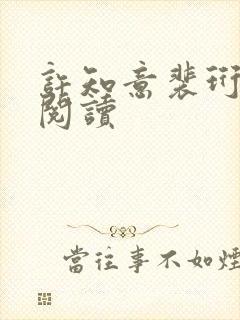 許知意裴珩
閱讀
當往事不如煙